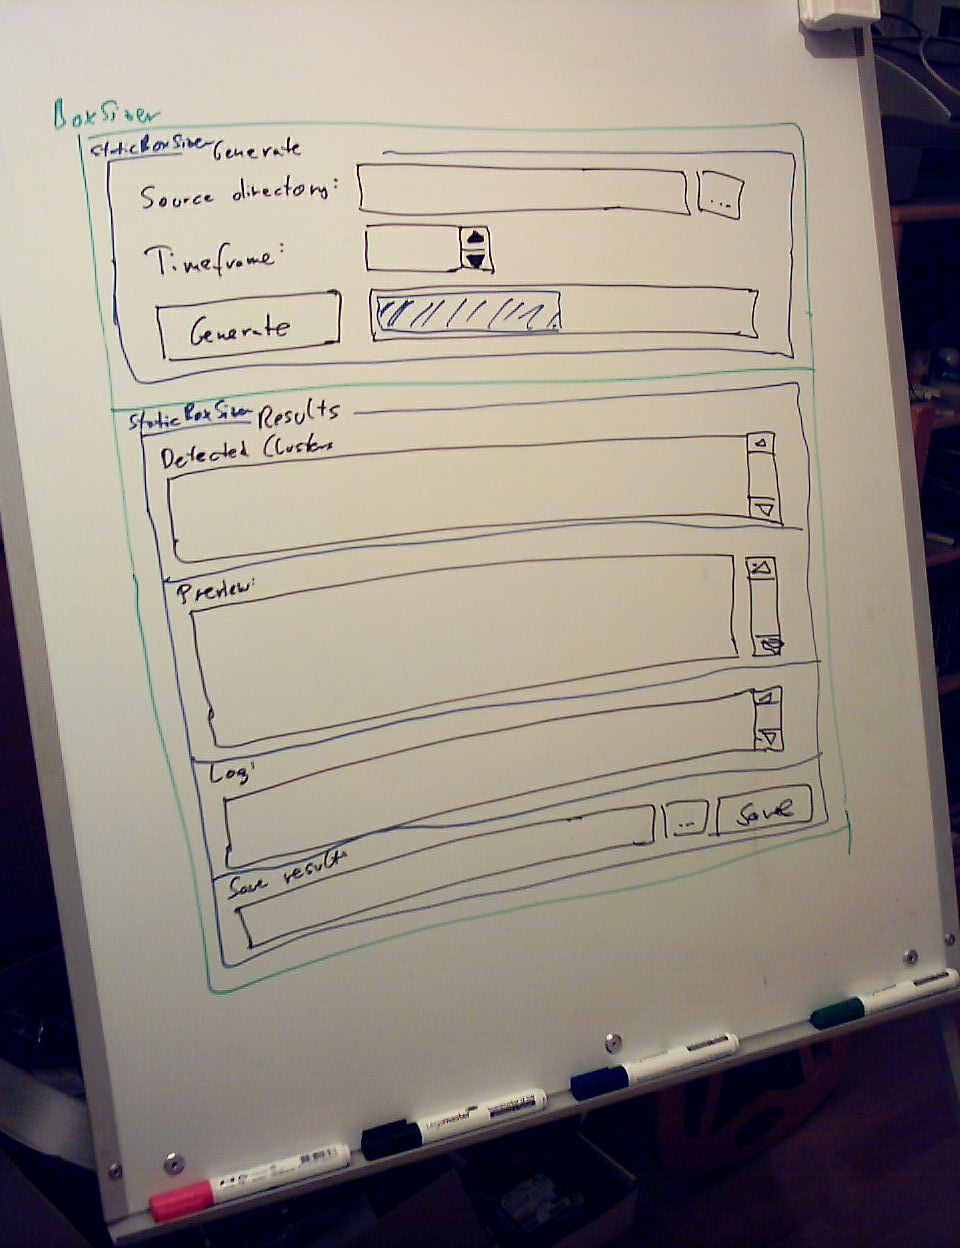 BoxSizer
StaticBoxSizer Generate
Source directory:
...
Timeframe:
Generate
StaticBoxSizer Results
Detected Clusters
Preview:
Log:
Save results
...
Save